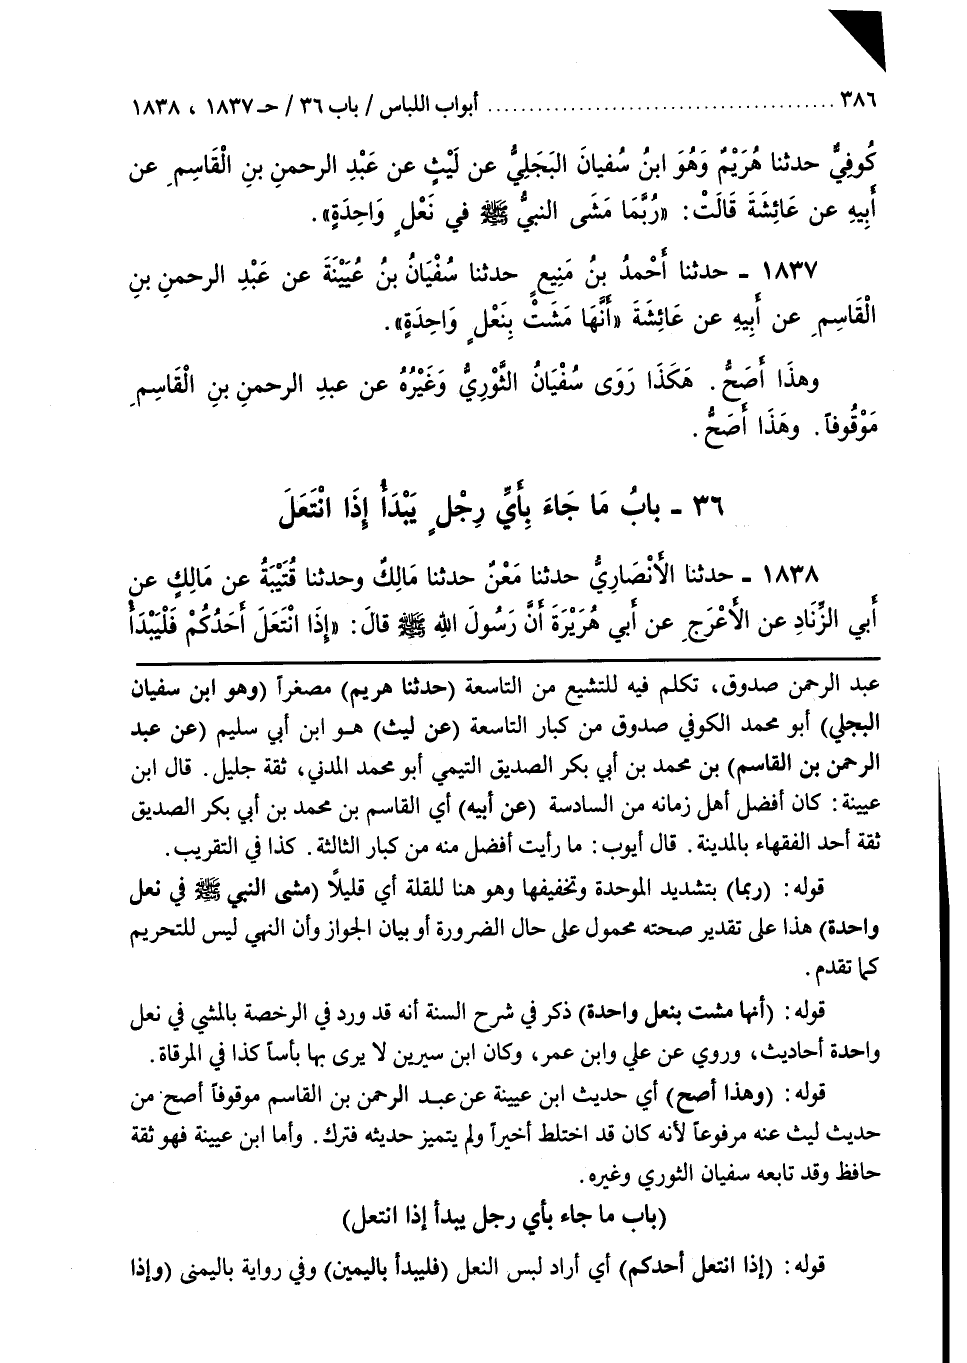 ٣٨٦ ........................................ أبواب اللباس / باب ٣٦ / حـ ١٨٣٧ ، ١٨٣٨
كُوفِيٌّ حدثنا هُرَيْمٌ وَهُوَ ابنُ سُفيانَ البَجَلِيُّ عن لَيْثٍ عن عَبْدِ الرحمنِ بنِ الْقَاسِمِ عن
أَبِيهِ عن عَائِشَةَ قَالَتْ: «رُبَّمَا مَشَى النبيُّ ﷺ في نَعْلٍ وَاحِدَةٍ».
١٨٣٧ - حدثنا أَحْمدُ بنُ مَنِيعٍ حدثنا سُفْيَانُ بنُ عُيَيْنَةَ عن عَبْدِ الرحمنِ بنِ
الْقَاسِمِ عن أَبِيهِ عن عَائِشَةَ «أَنَّهَا مَشَتْ بِنَعْلٍ وَاحِدَةٍ».
وهذَا أَصَحُّ. هَكَذَا رَوَى سُفْيَانُ الثَّوْرِيُّ وَغَيْرُهُ عن عبدِ الرحمنِ بنِ الْقَاسِمِ
مَوْقُوفاً. وهَذَا أَصَحُّ.
٣٦ - بابُ مَا جَاءَ بِأَيِّ رِجْلٍ يَبْدَأُ إِذَا انْتَعَلَ
١٨٣٨ - حدثنا الأَنْصَارِيُّ حدثنا مَعْنٌ حدثنا مَالِكٌ وحدثنا قُتَيْبَةُ عن مَالِكٍ عن
أَبي الزِّنَادِ عن الأَعْرَجِ عن أَبي هُرَيْرَةَ أَنَّ رَسُولَ اللهِ ﷺ قالَ: «إِذَا انْتَعَلَ أَحَدُكُمْ فَلْيَبْدَأْ
عبد الرحمن صدوق، تكلم فيه للتشيع من التاسعة (حدثنا هريم) مصغراً (وهو ابن سفيان
البجلي) أبو محمد الكوفي صدوق من كبار التاسعة (عن ليث) هو ابن أبي سليم (عن عبد
الرحمن بن القاسم) بن محمد بن أبي بكر الصديق التيمي أبو محمد المدني، ثقة جليل. قال ابن
عيينة: كان أفضل أهل زمانه من السادسة (عن أبيه) أي القاسم بن محمد بن أبي بكر الصديق
ثقة أحد الفقهاء بالمدينة. قال أيوب: ما رأيت أفضل منه من كبار الثالثة. كذا في التقريب.
قوله: (ربما) بتشديد الموحدة وتخفيفها وهو هنا للقلة أي قليلًا (مشى النبي ﷺ في نعل
واحدة) هذا على تقدير صحته محمول على حال الضرورة أو بيان الجواز وأن النهي ليس للتحريم
كما تقدم.
قوله: (أنها مشت بنعل واحدة) ذكر في شرح السنة أنه قد ورد في الرخصة بالمشي في نعل
واحدة أحاديث، وروي عن علي وابن عمر، وكان ابن سيرين لا يرى بها بأساً كذا في المرقاة.
قوله: (وهذا أصح) أي حديث ابن عيينة عن عبد الرحمن بن القاسم موقوفاً أصح من
حديث ليث عنه مرفوعاً لأنه كان قد اختلط أخيراً ولم يتميز حديثه فترك. وأما ابن عيينة فهو ثقة
حافظ وقد تابعه سفيان الثوري وغيره.
(باب ما جاء بأي رجل يبدأ إذا انتعل)
قوله: (إذا انتعل أحدكم) أي أراد لبس النعل (فليبدأ باليمين) وفي رواية باليمنى (وإذا